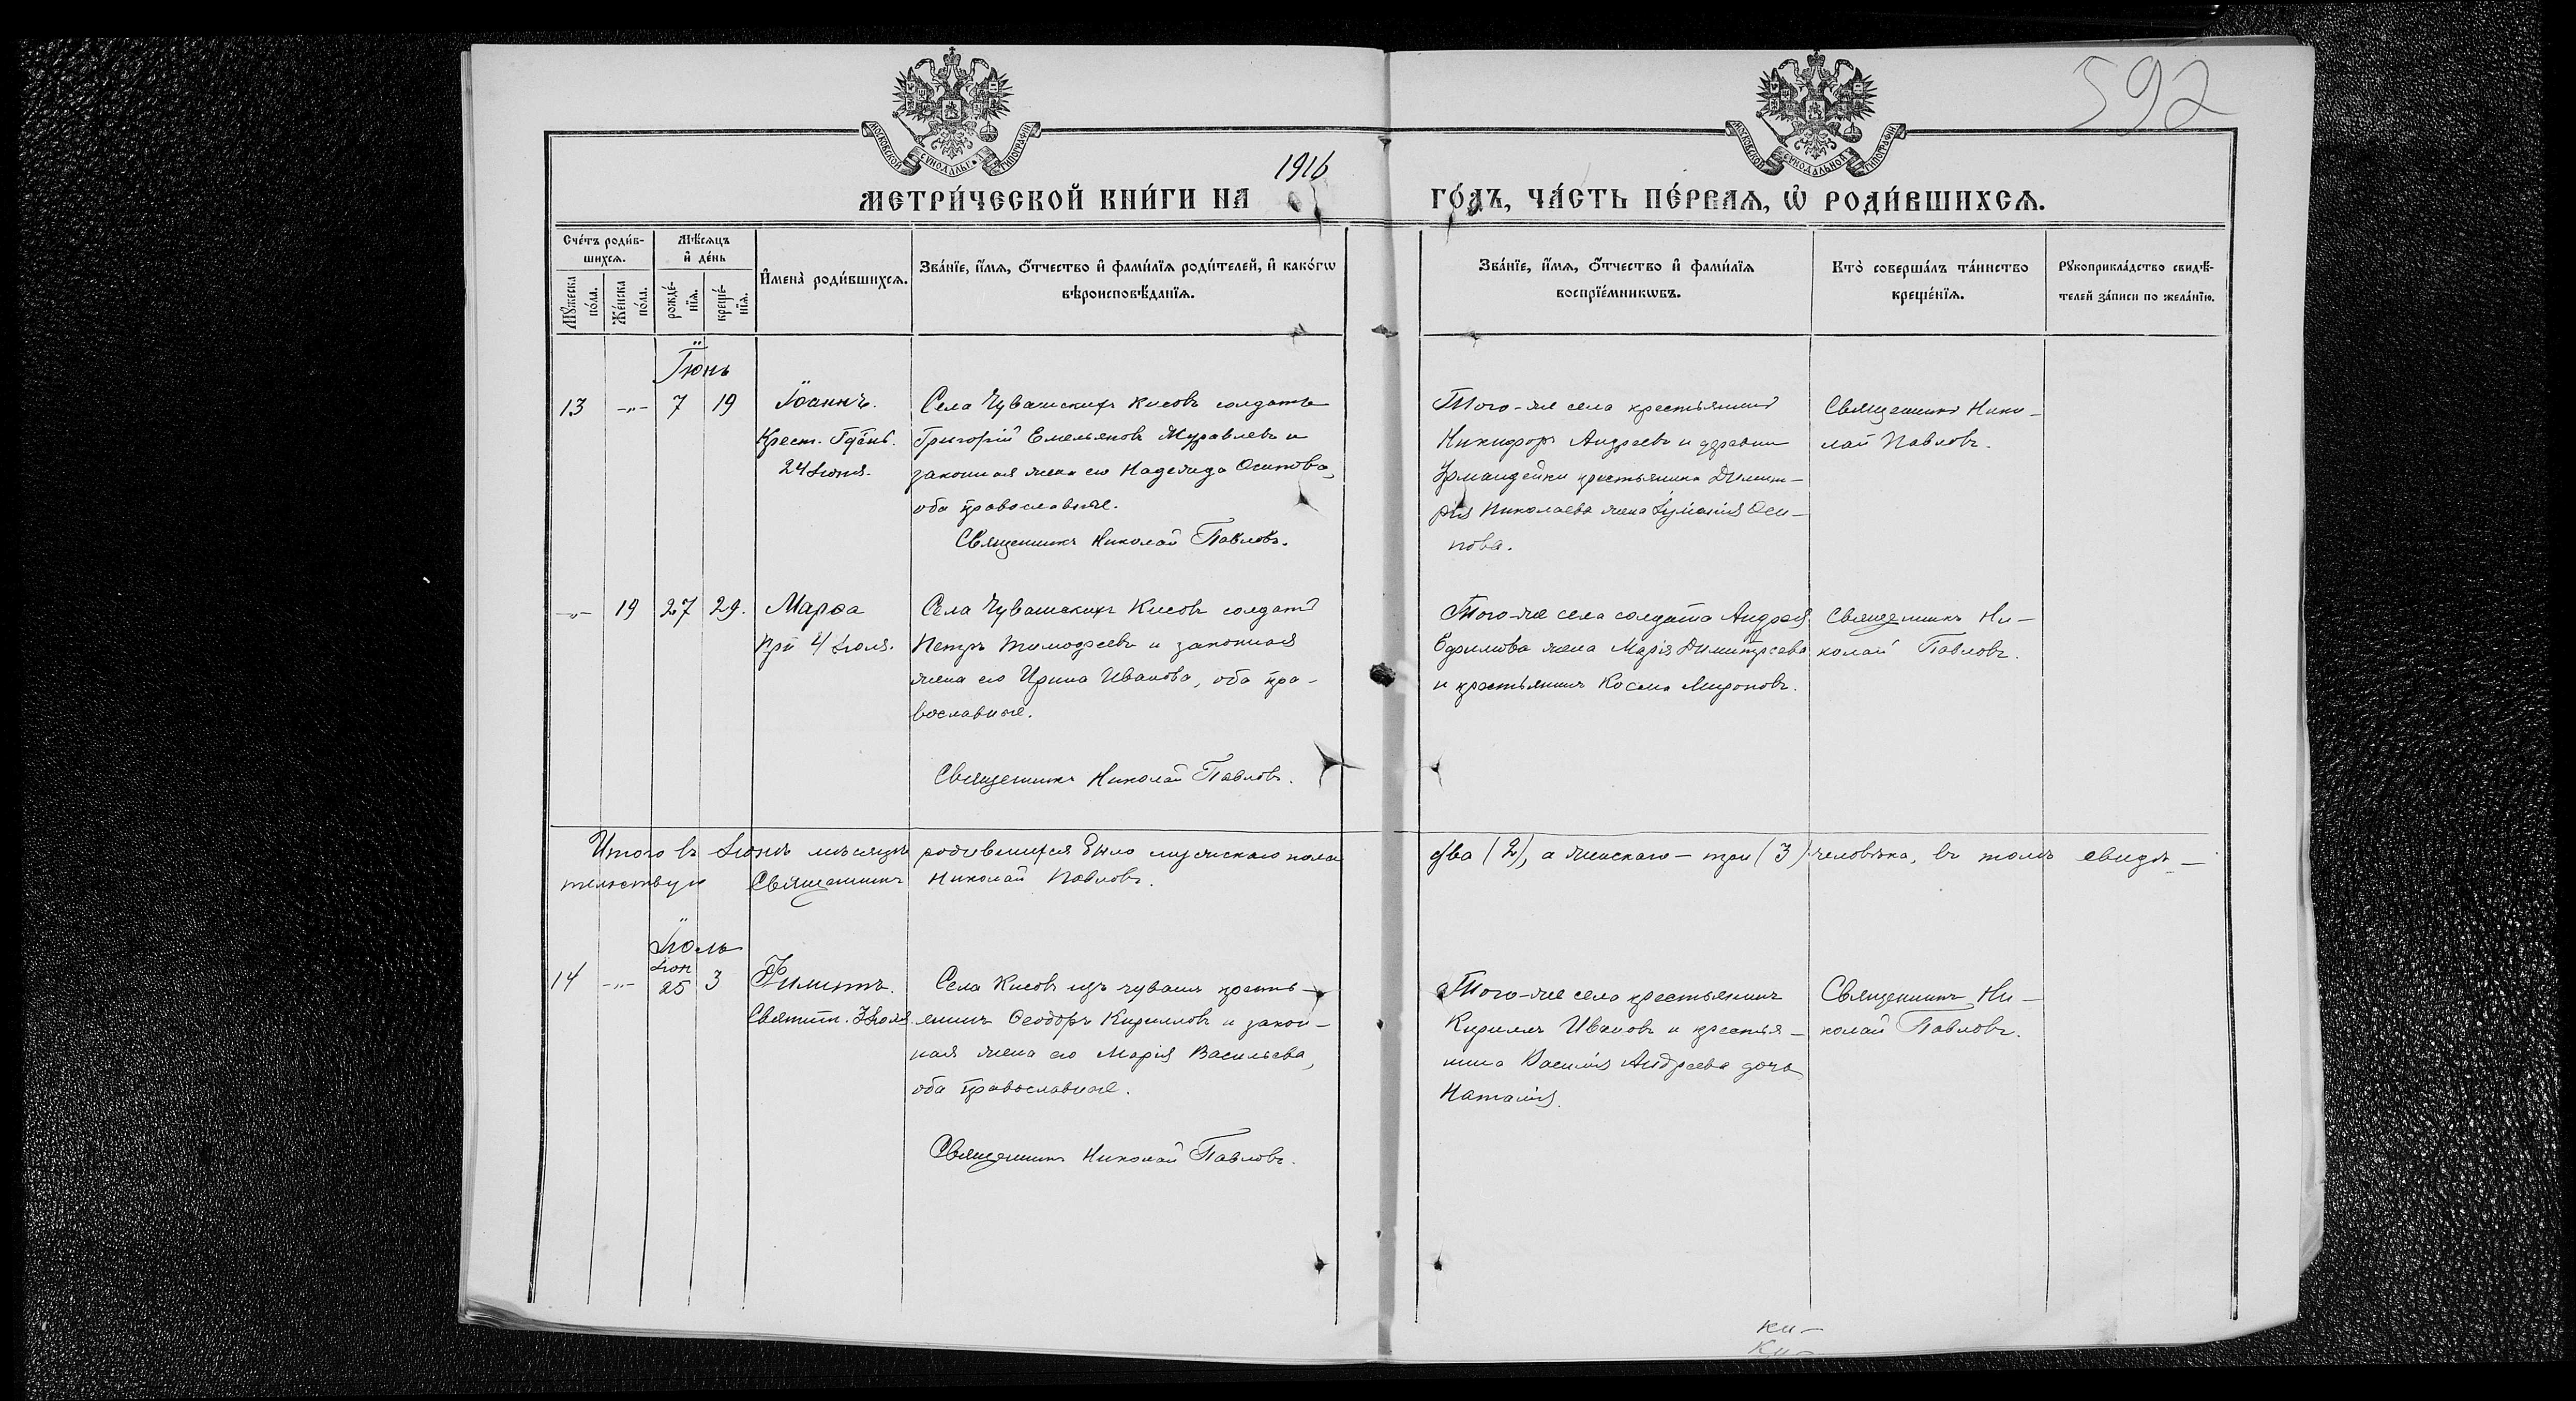 592
МОСКОВСКОЙ СУНОДАЛЬНОЙ ТИПОГРАФІИ
МОСКОВСКОЙ СУНОДАЛЬНОЙ ТИПОГРАФІИ
1916
МЕТРИ́ЧЕСКОЙ КНИ́ГИ НА ГО́ДЪ, ЧА́СТЬ ПЕ́РВАѦ, Ѡ РОДИ́ВШИХСѦ.
Сче́тъ роди́в-
шихсѧ.
Мꙋжеска по́ла.
Же́нска по́ла.
Мѣ́сѧцъ
и де́нь
рожде́-
нїѧ.
креще́-
нїѧ.
Имена̀ роди́вшихсѧ.
Зва́нїе, и́мѧ, о́тчество и фами́лїѧ роди́телей, и како́гѡ
вѣроисповѣ́данїѧ.
Зва́нїе, и́мѧ, о́тчество и фами́лїѧ
воспрїе́мникѡвъ.
Кто̀ соверша́лъ та́инство
креще́нїѧ.
Рꙋкоприкла́дство свидѣ́-
телей за́писи по жела́нїю.
Іюнь
13 -„- 7 19 Іоаннъ.
24 Іюня.
Села Чувашскихъ Кисовъ солдатъ
Григорій Емельяновъ Муравлевъ и
законная жена его Надежда Осипова,
оба православные.
Священникъ Николай Павловъ.
Того-же села крестьянинъ
Никифоръ Андреевъ и деревни
крестьянина Димит-
рія Николаева жена Іуліанія Оси-
пова.
Священникъ Нико-
лай Павловъ.
-„- 19 27 29. Марѳа
4 Іюля.
Села Чувашскихъ Кисовъ солдатъ
Петръ Тимофеевъ и законная
жена его Ирина Иванова, оба пра-
вославные.
Священникъ Николай Павловъ.
Того-же села солдата Андрея
Ефимова жена Марія Димитріева
и крестьянинъ Косма Мироновъ.
Священникъ Ни-
колай Павловъ.
Итого въ Іюнѣ мѣсяцѣ родившихся было мужскаго пола два (2), а женскаго - три (3) человѣка, въ томъ свидѣ-
тельствую Священникъ Николай Павловъ.
Іюль
14 -„- Іюн 25 3
Святит. 3 Іюля.
Села Кисовъ изъ чувашъ кресть-
янинъ Ѳеодоръ Кирилловъ и закон-
ная жена его Марія Васильева,
оба православные.
Священникъ Николай Павловъ.
Того-же села крестьянинъ
Кириллъ Ивановъ и крестья-
нина Василія Андреева дочь
Наталія.
Священникъ Ни-
колай Павловъ.